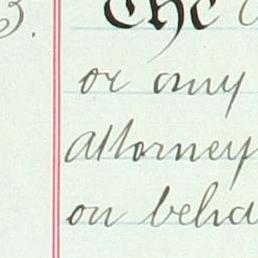 3. The
or any
Attorney
on beha